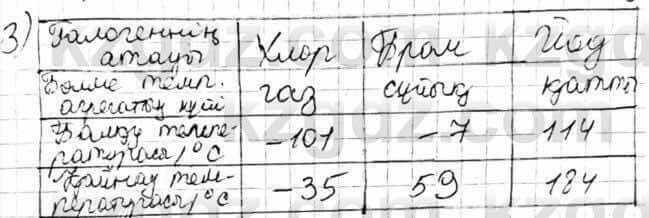 3) Галогеннің атауы Хлор Бром Йод
Бөлме темп. агрегаттық күйі газ сұйық қатты
Балқу темпе-ратурасы, °C -101 -7 114
Қайнау тем-пературасы, °C -35 59 184